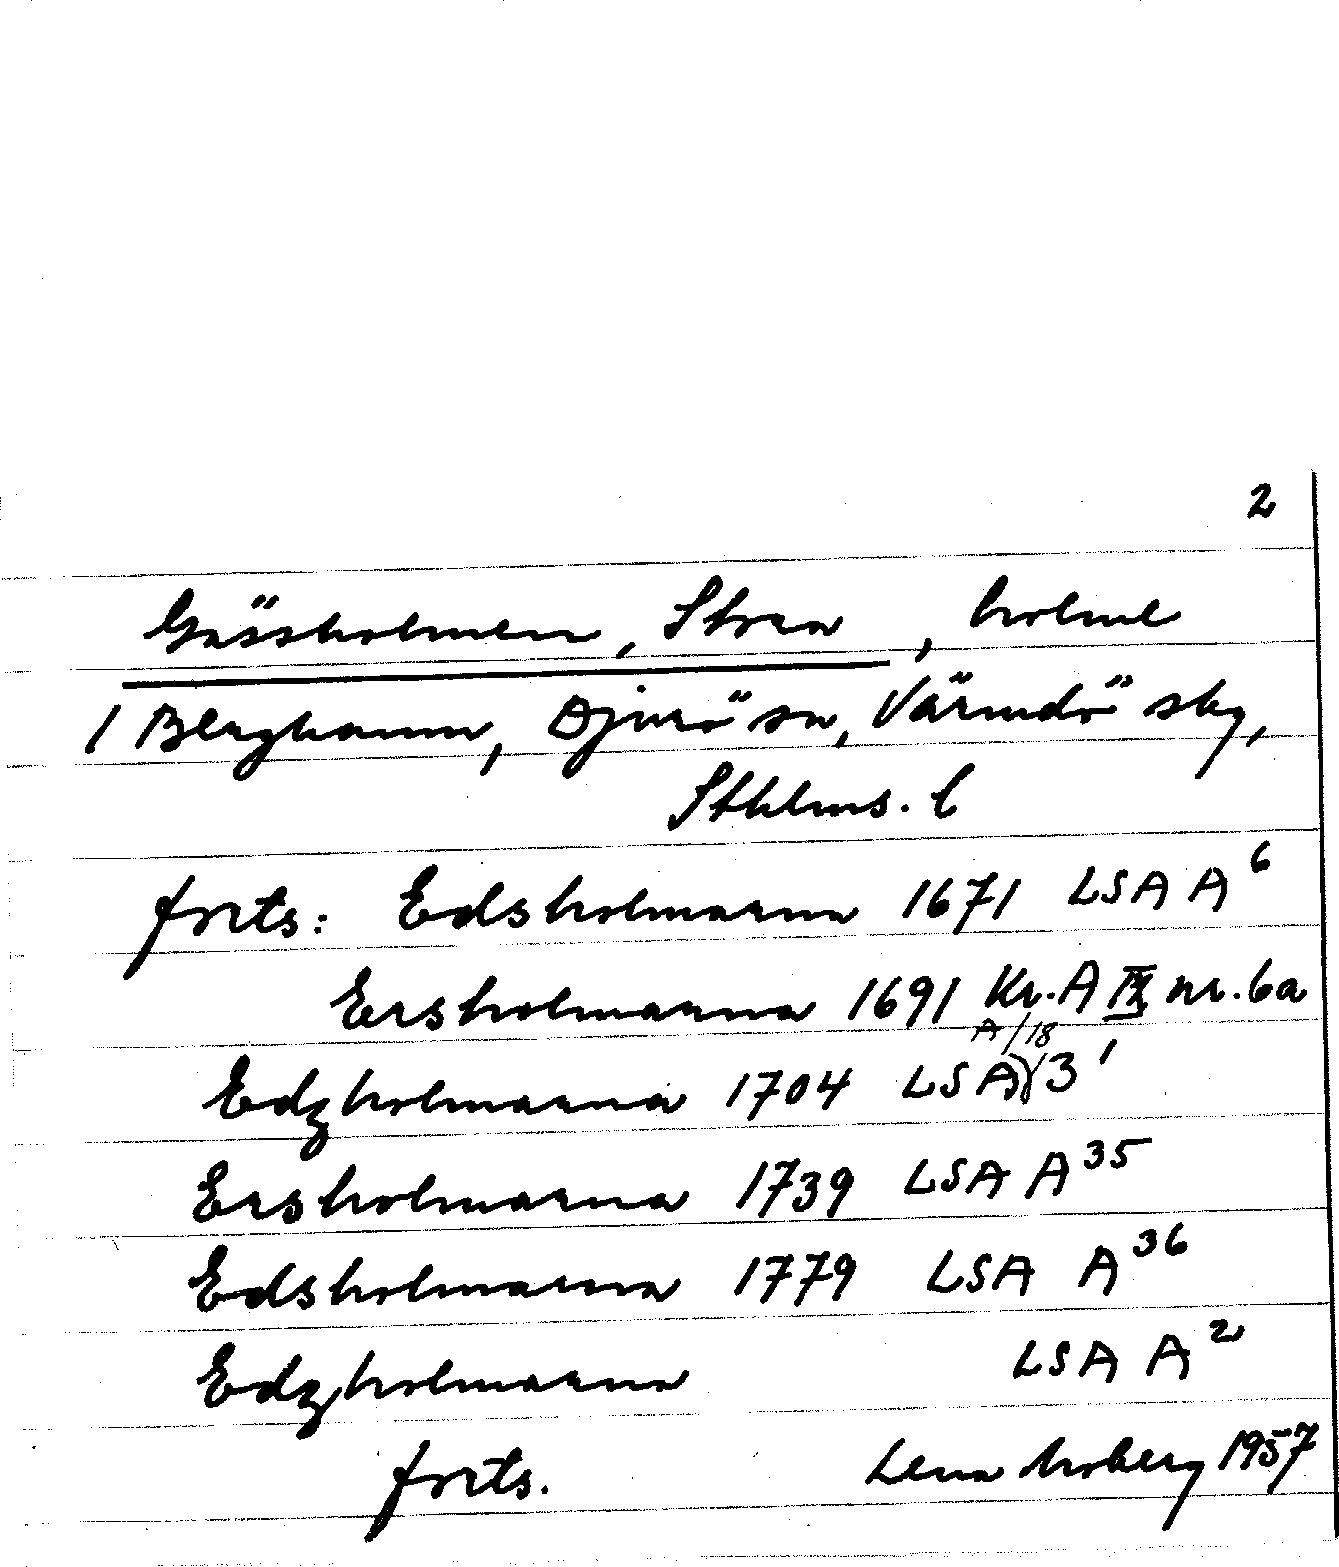 2
Gässholmen, Stora, holme
/ Berghamn, Djurö sn, Värmdö skg,
Sthlms. l
forts: Edsholmarna 1671 LSA A⁶
Ersholmarna 1691 Kr.A IX nr. 6a
A/18
Edzholmarna 1704 LSA 3¹
Ersholmarna 1739 LSA A³⁵
Edsholmarna 1779 LSA A³⁶
Edzholmarna LSA A²
forts. Lena Moberg 1957